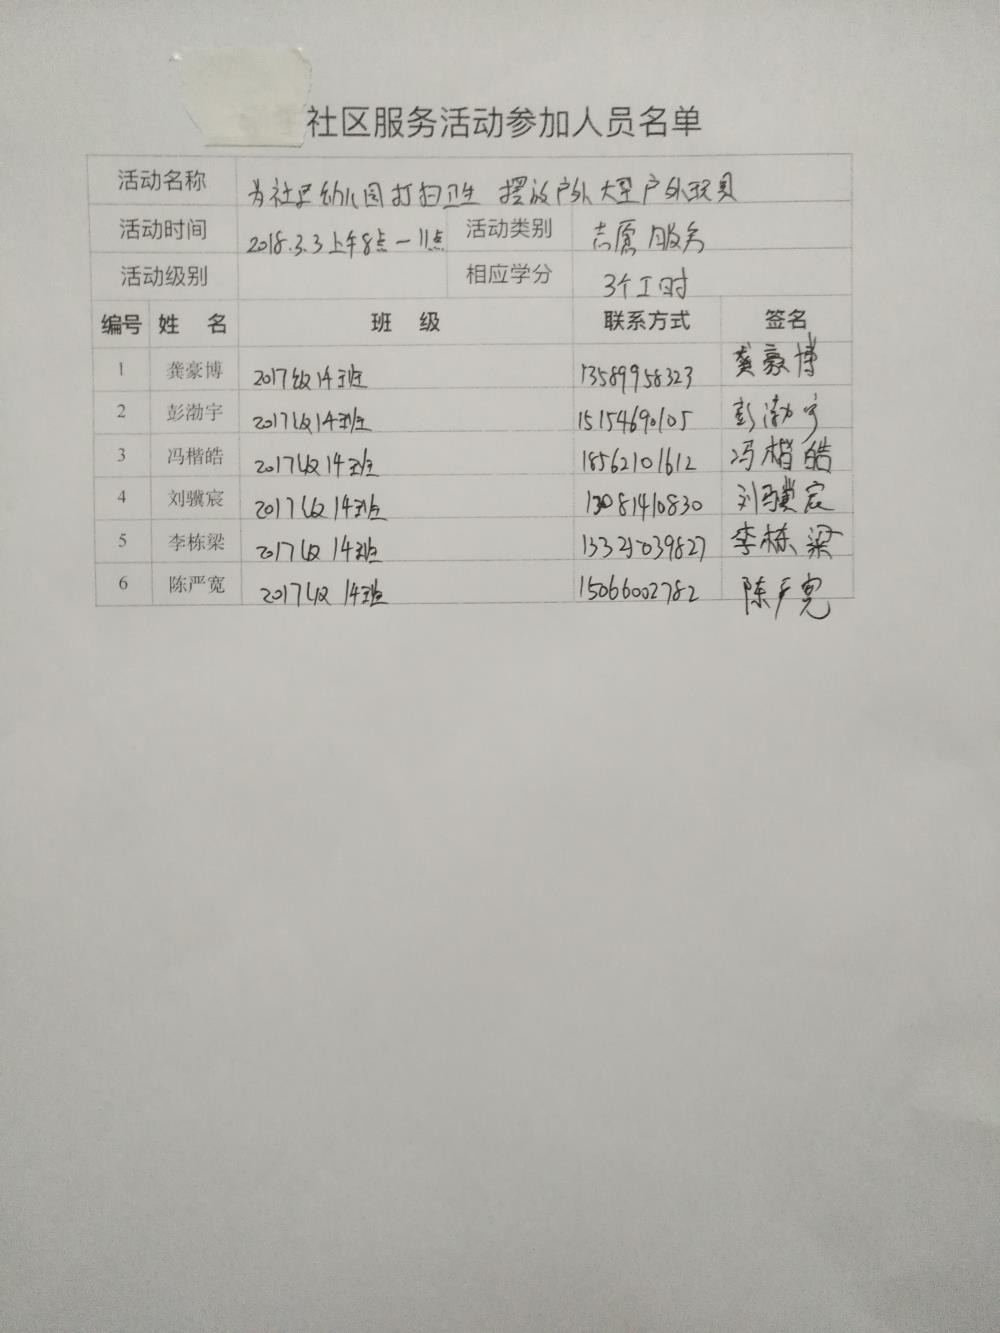 社区服务活动参加人员名单
活动名称 为社区幼儿园打扫卫生 摆放户外大型户外玩具
活动时间 2018.3.3上午8点一11点 活动类别 志愿服务
活动级别 相应学分 3个工时
编号 姓 名 班 级 联系方式 签名
1 龚豪博 2017级14班 13589958323 龚豪博
2 彭渤宇 2017级14班 15154690105 彭渤宇
3 冯楷皓 2017级14班 18562101612 冯楷皓
4 刘骥宸 2017级14班 13081410830 刘骥宸
5 李栋梁 2017级14班 13325039827 李栋梁
6 陈严宽 2017级14班 15066002782 陈严宽